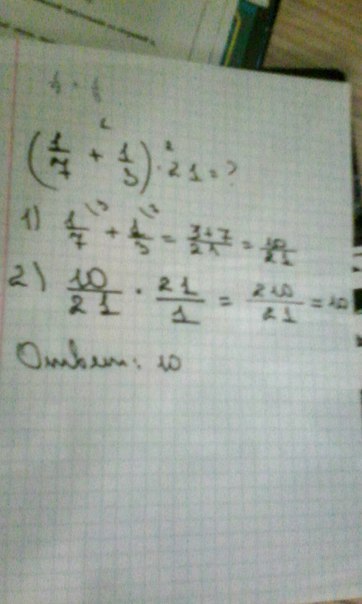 (1/7 + 1/3) · 21 = ?
1) 1/7 + 1/3 = 3+7/21 = 10/21
2) 10/21 · 21/1 = 210/21 = 10
Ответ: 10